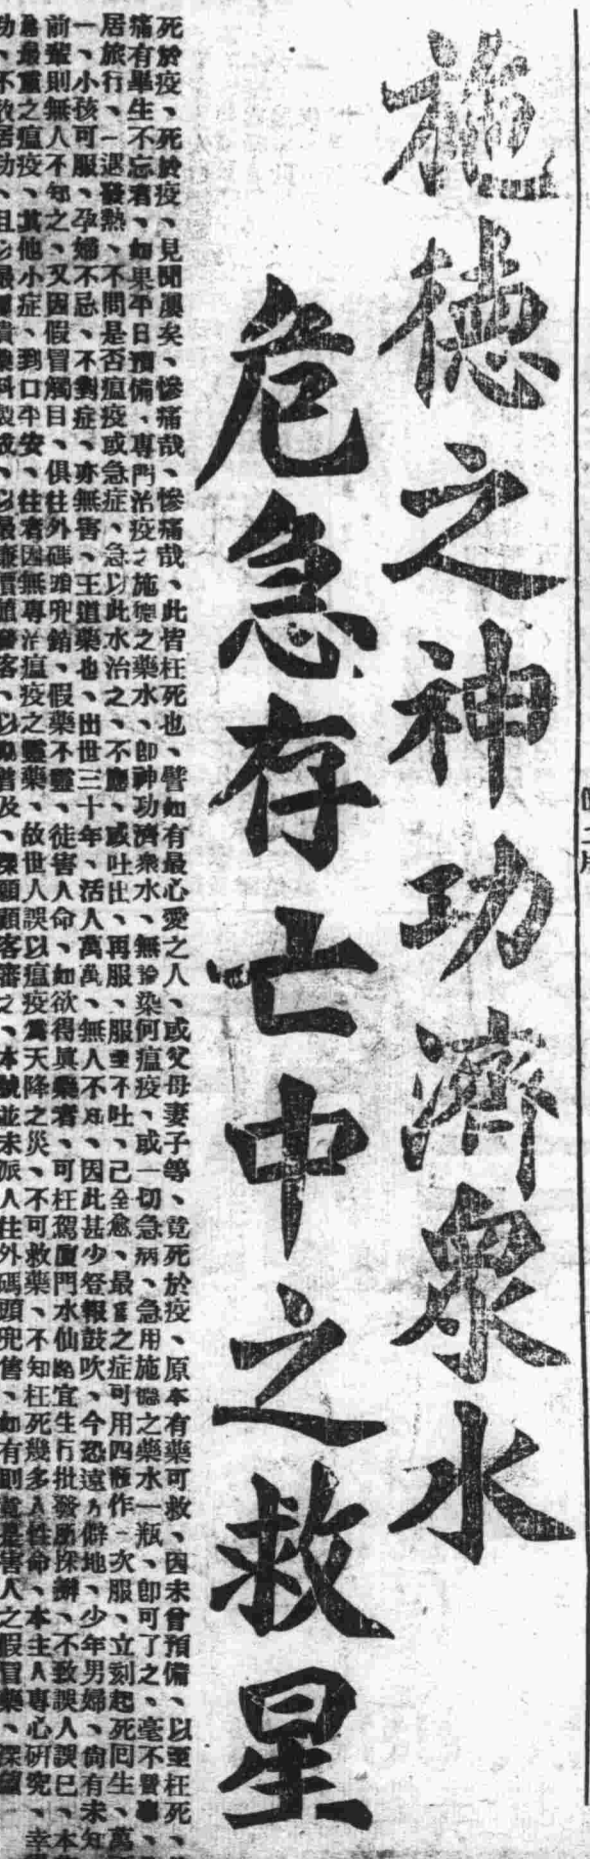 施德之神功濟衆水
危急存亡中之救星
死於疫、死於疫、見聞屢矣、慘痛哉、慘痛哉、此皆枉死也、譬如有最心愛之人、或父母妻子等、竟死於疫、原本有藥可救、因未曾預備、以至枉死、
痛有畢生不忘者、如果平日預備、專門治疫之施德之藥水、卽神功濟衆水、無論染何瘟疫、或一切急病、急用施德之藥水一瓶、卽可了之、毫不費事、
居旅行、一遇發熱、不問是否瘟疫或急症、急以此水治之、不應、或吐出、再服、服至不吐、已全愈、最重之症可用四瓶作一次服、立刻起死回生、萬
一、小孩可服、孕婦不忌、不對症、亦無害、王道藥也、出世三十年、活人萬萬、無人不知、因此甚少登報鼓吹、今恐遠方僻地、少年男婦、尙有未知
前輩則無人不知之、又因假冒觸目、俱往外碼頭兜銷、假藥不靈、徒害人命、如欲得眞藥者、可枉駕廈門水仙宮宜生行批發所採辦、不致誤人誤已、本
最重之瘟疫、其他小症、到口平安、往者因無專治瘟疫之靈藥、故世人誤以瘟疫爲天降之災、不可救藥、不知枉死幾多人性命、本主人專心研究、幸
客、以 普及、深願顧客審之、本號並未派人往外碼頭兜售、如有則 是害人之假冒藥、深